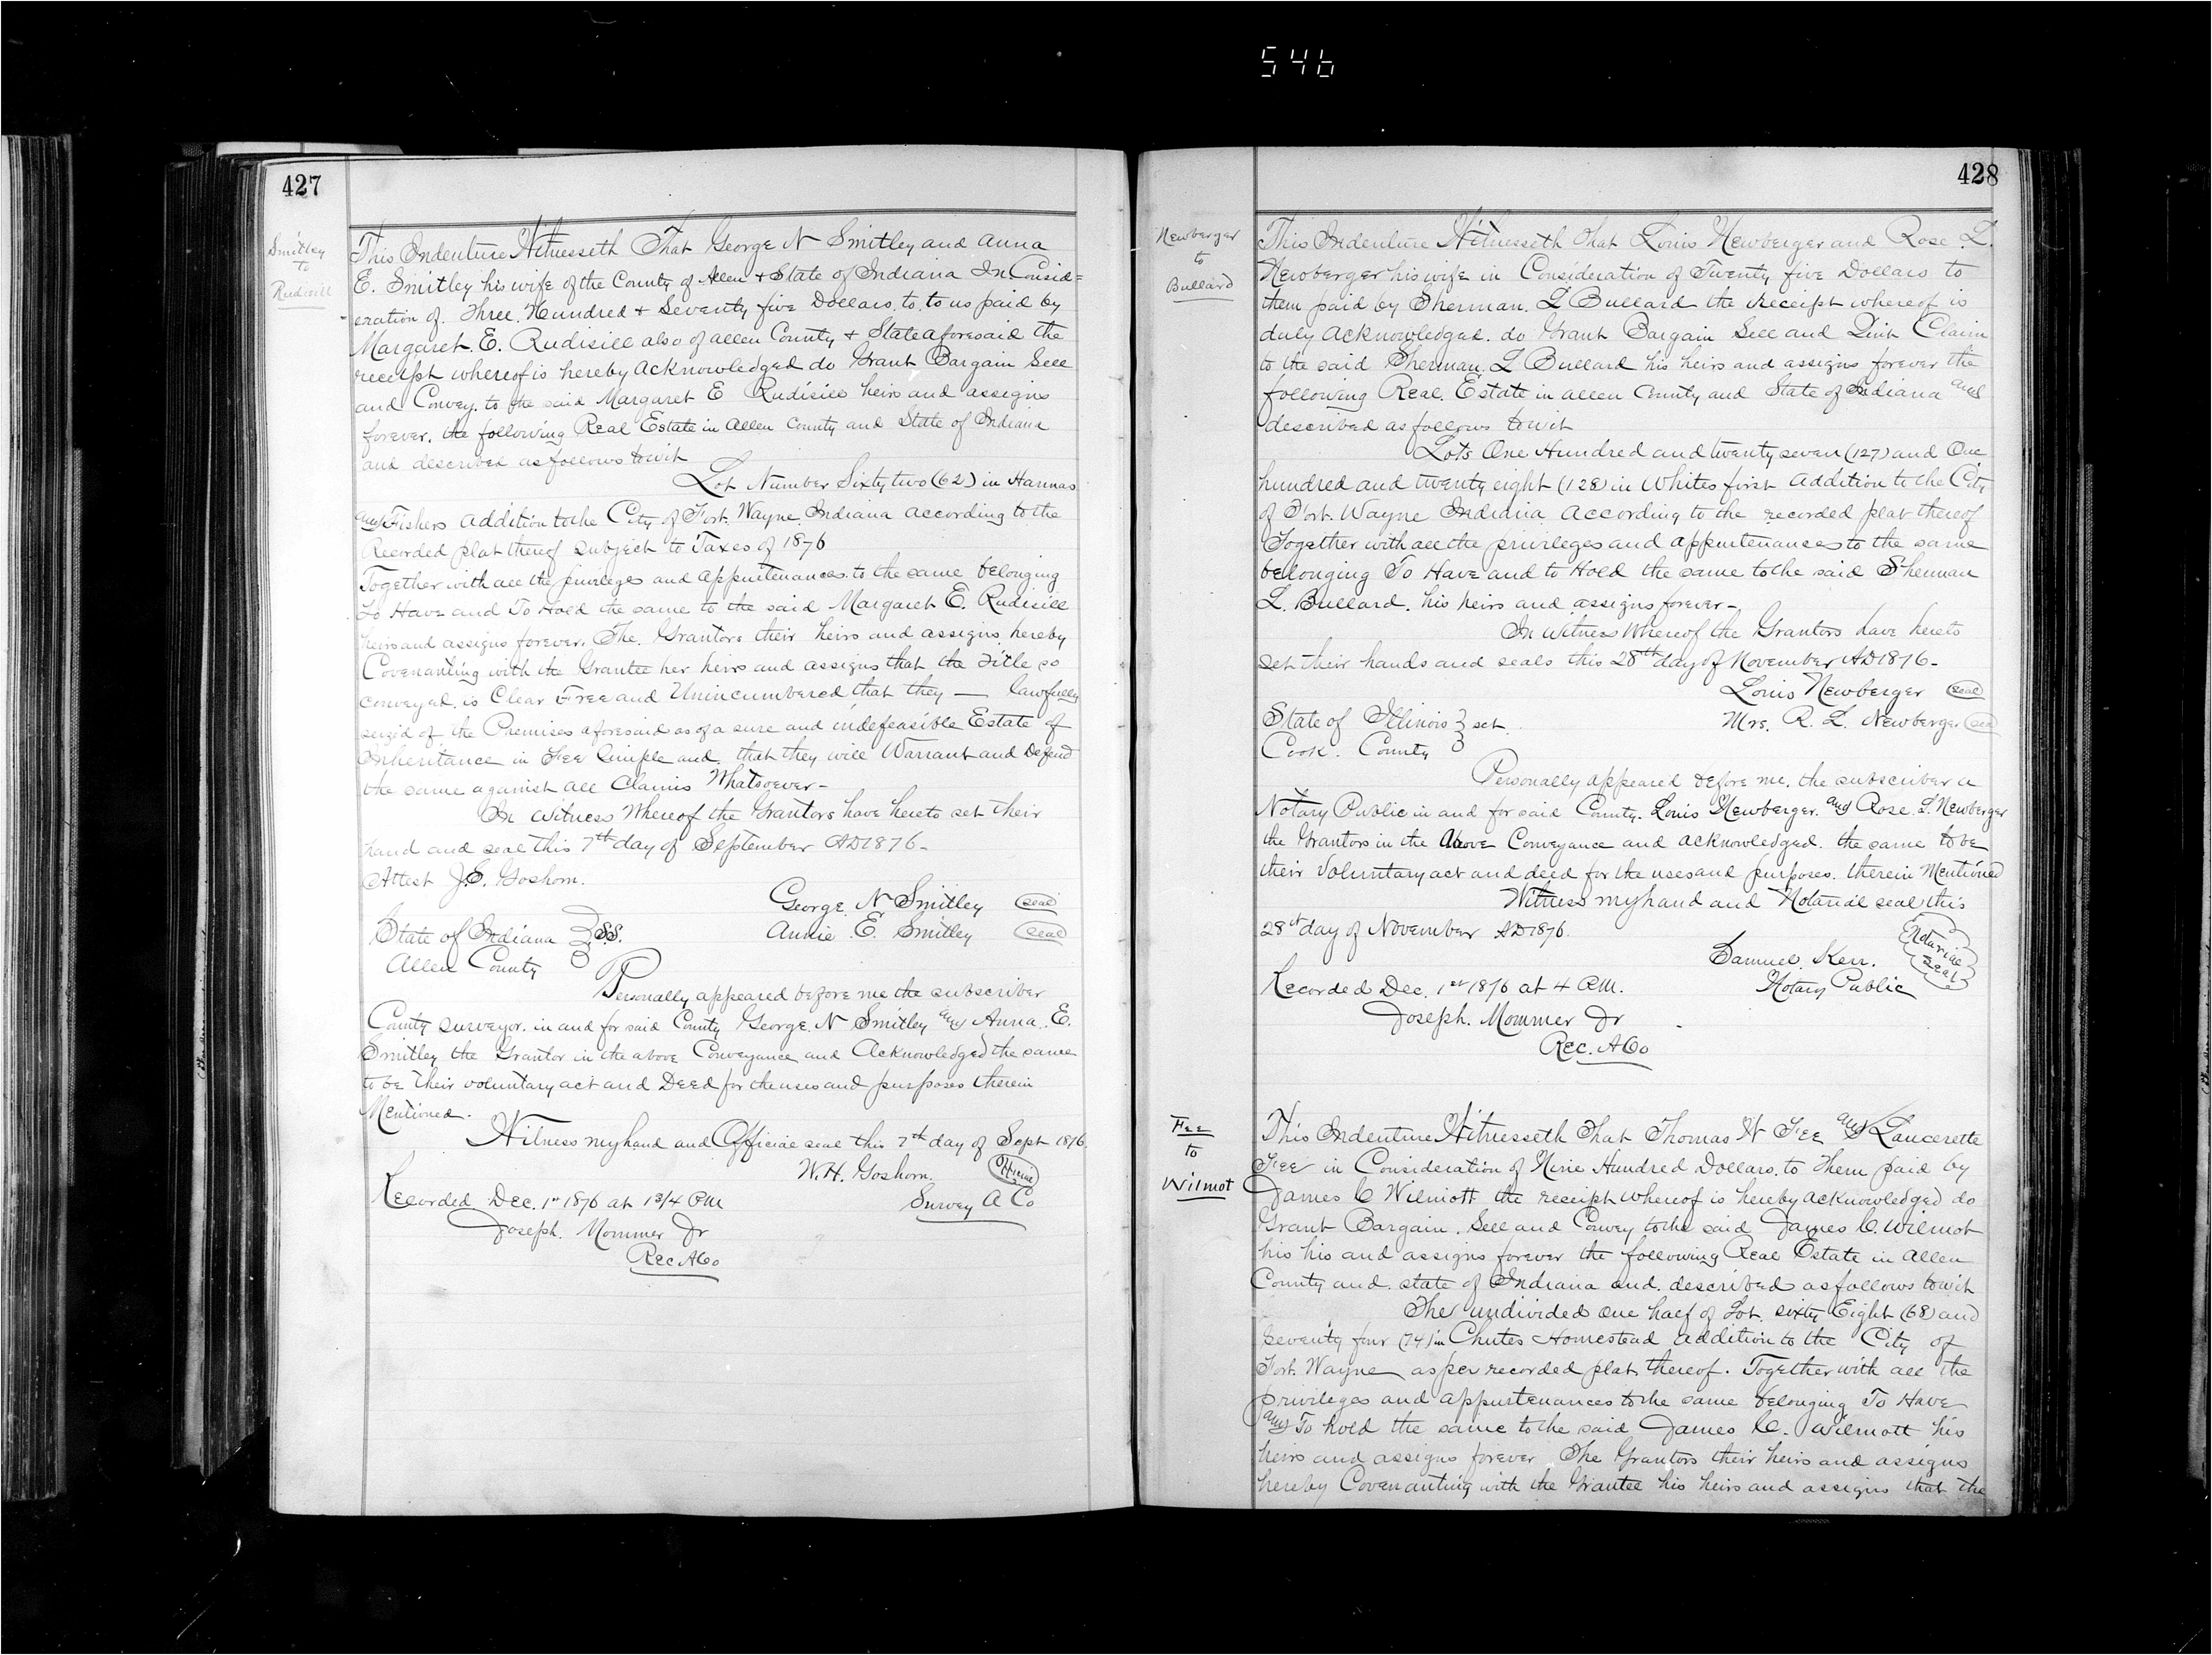 546
427
Smitley
to
Rudisill
This Indenture Witnesseth That George N Smitley and Anna
E. Smitley his wife of the County of Allen + State of Indiana In Consid=
eration of Three Hundred + Seventy five Dollars to to us paid by
Margaret E. Rudisill also of Allen County + State aforesaid the
receipt whereof is hereby acknowledged do Grant Bargain Sell
and Convey to the said Margaret E Rudisill heirs and assigns
forever, the following Real Estate in Allen County and State of Indiana
and described as follows towit
Lot Number Sixty two (62) in Hannas
and Fishers Addition to the City of Fort Wayne Indiana according to the
Recorded plat thereof subject to Taxes of 1876
Together with all the privileges and appurtenances to the same belonging
To Have and To Hold the same to the said Margaret E. Rudisill
heirs and assigns forever. The Grantors their heirs and assigns hereby
Covenanting with the Grantee her heirs and assigns that the Title so
conveyed is Clear Free and Unincumbered that they — lawfully
seized of the Premises aforesaid as of a sure and indefeasible Estate of
Inheritance in Fee Simple and that they will Warrant and Defend
the same against all Claims Whatsoever -
In Witness Whereof the Grantors have hereto set their
hand and seal this 7th day of September AD 1876 -
Attest J.E. Goshorn.
George N Smitley seal
Annie E. Smitley seal
State of Indiana } SS.
Allen County
Personally appeared before me the subscriber
County surveyor in and for said County George N Smitley and Anna E.
Smitley the Grantor in the above Conveyance and Acknowledged the same
to be their voluntary act and Deed for the uses and purposes therein
Mentioned.
Witness my hand and Official seal this 7th day of Sept 1876.
W.H. Goshorn. Official
Survey A Co
Recorded Dec. 1st 1876 at 1 3/4 PM
Joseph Mommer Jr
Rec A Co
428
Newberger
to
Bullard
This Indenture Witnesseth That Louis Newberger and Rose L.
Newberger his wife in Consideration of Twenty five Dollars to
them paid by Sherman L Bullard the receipt whereof is
duly acknowledged do Grant Bargain Sell and Quit Claim
to the said Sherman L Bullard his heirs and assigns forever the
following Real Estate in Allen County and State of Indiana and
described as follows towit
Lots One Hundred and twenty seven (127) and One
hundred and twenty eight (128) in Whites first Addition to the City
of Fort Wayne Indiana According to the recorded plat thereof
Together with all the privileges and appurtenances to the same
belonging To Have and to Hold the same to the said Sherman
L. Bullard his heirs and assigns forever -
In Witness Whereof the Grantors have hereto
set their hands and seals this 28th day of November AD 1876 -
Louis Newberger seal
Mrs. R. L. Newberger seal
State of Illinois } sct.
Cook County
Personally appeared before me, the subscriber a
Notary Public in and for said County Louis Newberger and Rose L. Newberger
the Grantors in the Above Conveyance and acknowledged the same to be
their Voluntary act and deed for the uses and purposes therein Mentioned
Witness my hand and Notarial seal this
28th day of November AD 1876.
Samuel Kerr.
Notary Public
Notarial
Seal
Recorded Dec. 1st 1876 at 4 P.M.
Joseph Mommer Jr
Rec. A Co
Fee
to
Wilmot
This Indenture Witnesseth That Thomas H Fee and
Fee in Consideration of Nine Hundred Dollars to Them paid by
James C Wilmott the receipt whereof is hereby acknowledged do
Grant Bargain Sell and Convey to the said James C. Wilmot
his his and assigns forever the following Real Estate in Allen
County and state of Indiana and described as follows towit
The undivided One half of Lot sixty Eight (68) and
Seventy four (74) in Chutes Homestead addition to the City of
Fort Wayne as per recorded plat thereof. Together with all the
privileges and appurtenances to the same belonging To Have
and To hold the same to the said James C. Wilmott his
heirs and assigns forever The Grantors their heirs and assigns
hereby Covenanting with the Grantee his heirs and assigns that the